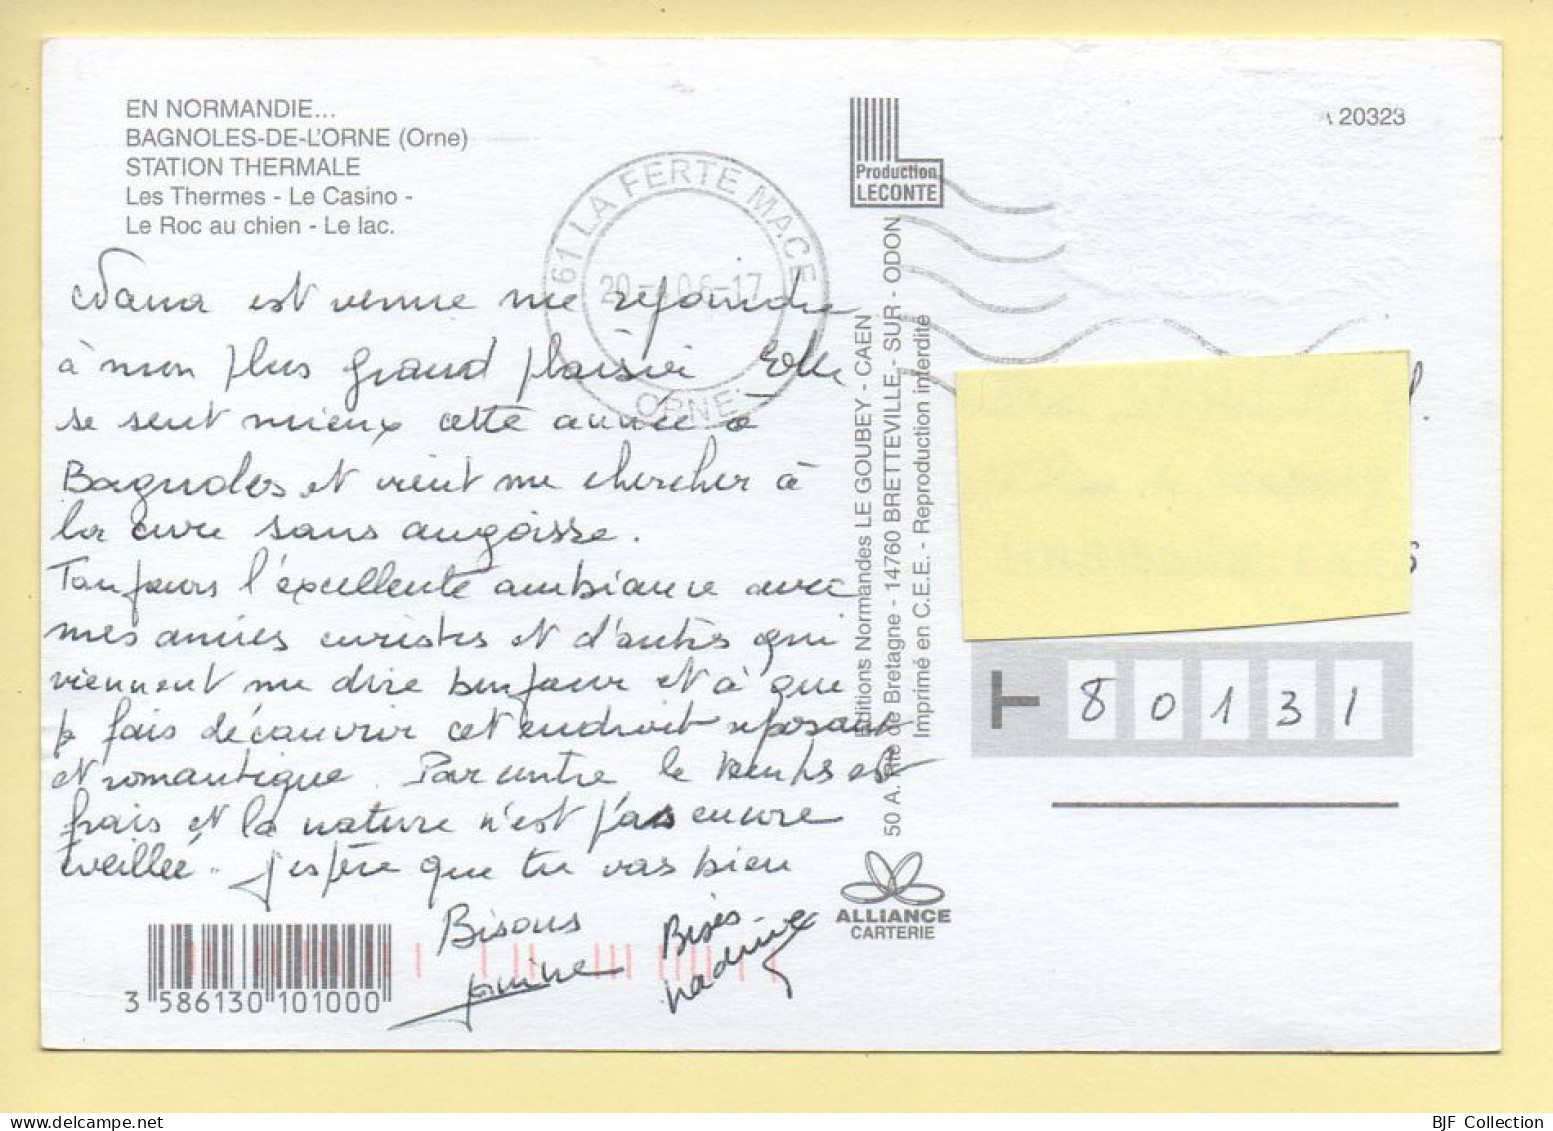 EN NORMANDIE...
BAGNOLES-DE-L'ORNE (Orne)
STATION THERMALE
Les Thermes - Le Casino -
Le Roc au chien - Le lac.
61 LA FERTE MACE
ORNE
Production
LECONTE
20323
est venue me rejoindre
à mon plus grand plaisir Elle
se sent mieux cette année à
Bagnoles et vient me chercher à
la cure sans angoisse.
Toujours l'excellente ambiance avec
mes amies curistes et d'autres qui
viennent me dire bonjour et à qui
je fais découvrir cet endroit reposant
et romantique. Par contre le temps est
frais et la nature n'est pas encore
éveillée.. J'espère que tu vas bien
Bisous
Bises
Nadine
Editions Normandes LE GOUBEY - CAEN
50 A. Rte de Bretagne - 14760 BRETTEVILLE - SUR - ODON
Imprimé en C.E.E. - Reproduction interdite
T 80131
ALLIANCE
CARTERIE
3 586130 101000
BJF Collection